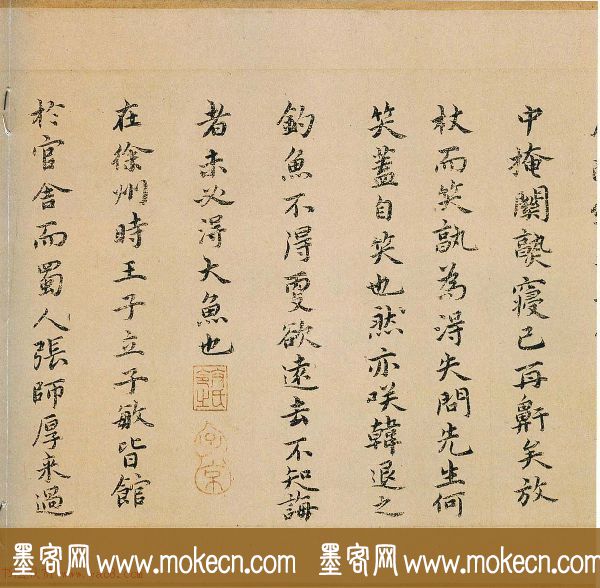 中掩關熟寢已再鼾矣放
杖而笑孰為得失問先生何
笑蓋自笑也然亦咲韓退之
釣魚不得更欲遠去不知海
者未必得大魚也
在徐州時王子立子敏皆館
於官舍而蜀人張師厚來過
墨客网 www.mokecn.com 墨客网 www.mokecn.com